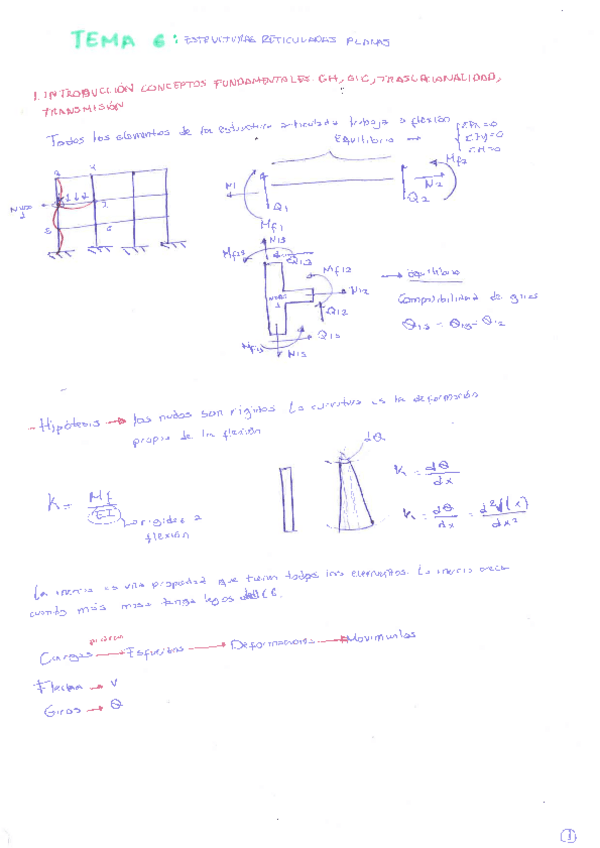 TEMA 6: ESTRUCTURAS RETICULADAS PLANAS
1. INTRODUCCIÓN CONCEPTOS FUNDAMENTALES. GH, GIC, TRASLACIONALIDAD,
TRANSMISIÓN
Todos los elementos de la estructura articulada trabaja a flexión
Equilibrio → ΣFx=0
ΣFy=0
ΣM=0
Mf2
N2
Q2
N1
Q1
Mf1
NUDO
1
N13
Mf13
Q13
Mf12
N12
Q12
NUDO
1
Q15
Mf15
N15
→ equilibrio
Compatibilidad de giros
θ13 = θ15 = θ12
- Hipótesis → los nudos son rígidos La curvatura es la deformación
propia de la flexión
K = Mf / EI
rigidez a
flexión
dθ
K = dθ / dx
K = dθ / dx = d²V(x) / dx²
La inercia es una propiedad que tienen todos los elementos. La inercia crece
cuando más masa tenga lejos del C.G.
Cargas → Esfuerzos → Deformaciones → Movimientos
Flecha → v
Giros → θ
1